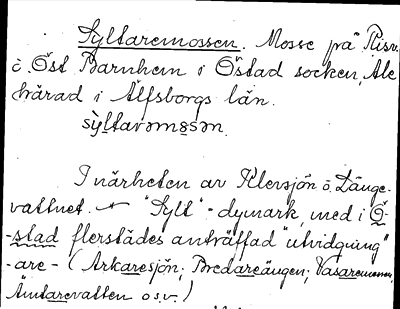 Syltaremossen. Mosse på Risv.
o. Öst. Barnhem i Östad socken, Ale
härad i Älfsborgs län.
syltarəmosən.
I närheten av Klevsjön o. Långe-
vattnet. "Sylt" - dymark, med i Ö-
-stad flerstädes anträffad "utvidgning"
-are- (Arkaresjön; Bredareängen; Vasaremossen,
Ämtarevatten o.s.v.)